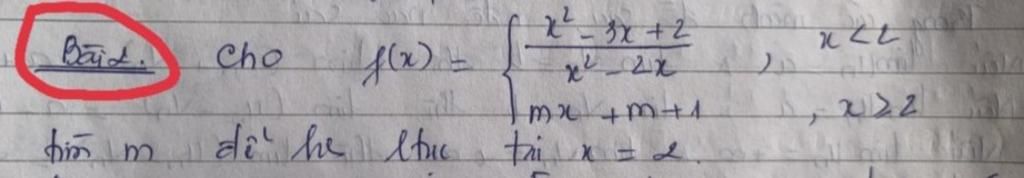 Bài 2. Cho f(x) = { (x² - 3x + 2)/(x² - 2x) , x < 2
mx + m + 1 , x ≥ 2
tìm m để h/s ltục tại x = 2.